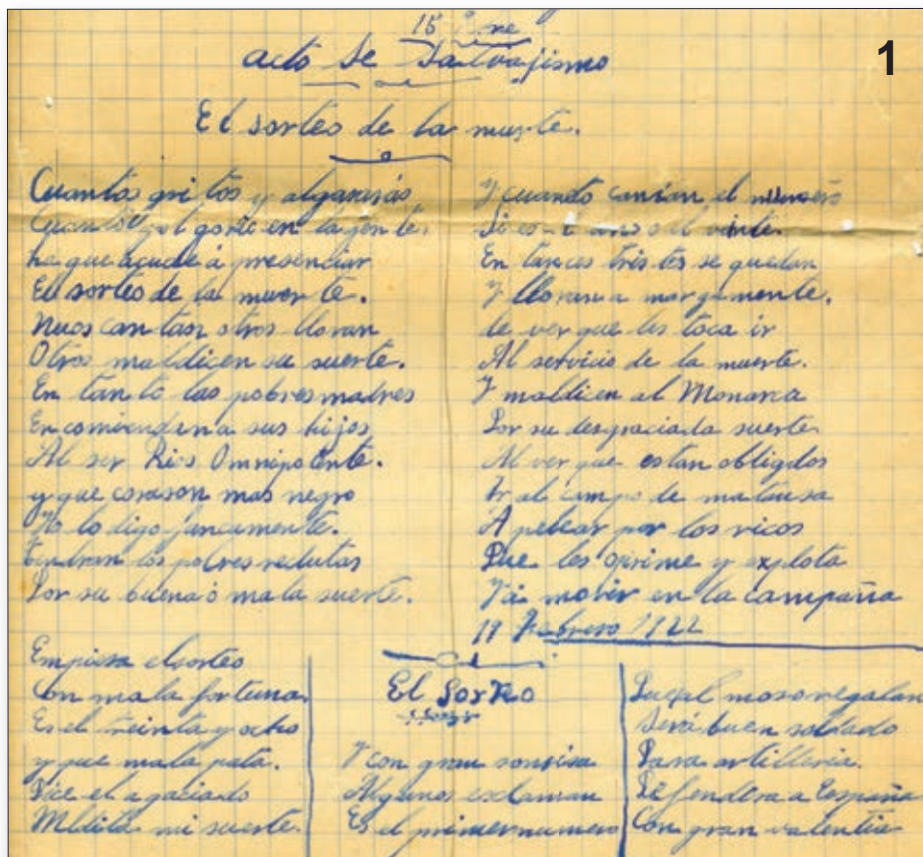 15 ne
1
acto de Salvajismo
El sorteo de la muerte.
Cuantos gritos y algararás
en la jente.
ha que acude á presenciar
El sorteo de la muerte.
cantan otros lloran
Otros maldicen su suerte.
En tanto las pobres madres
Encomiendan a sus hijos
Al ser Dios Omnipotente.
y que corason mas negro
Yo lo digo francamente.
tendran los pobres reclutas
Por su buena ó mala suerte.
Y cuando cantan el numero
Si es el uno o el viente.
En tances tristes se quedan
Y lloran a margamente.
de ver que les toca ir
Al servicio de la muerte.
Y maldicen al Monarca
Por su desgraciada suerte
Al ver que estan obligdos
Ir al campo de matansa
A pelear por los ricos
Que les oprime y explota
Y á morir en la campaña
19 Febrero 1922
Empiesa el sorteo
Con mala fortuna.
Es el treinta y ocho
y que mala pata.
Dice el agaciado
Mldita mi suerte.
El Sorteo
Y con gran sonrisa
Algunos exclaman
Es el primer numero
moso regalan
Será buen soldado
Para artilleria.
Defendera a España
Con gran valentia